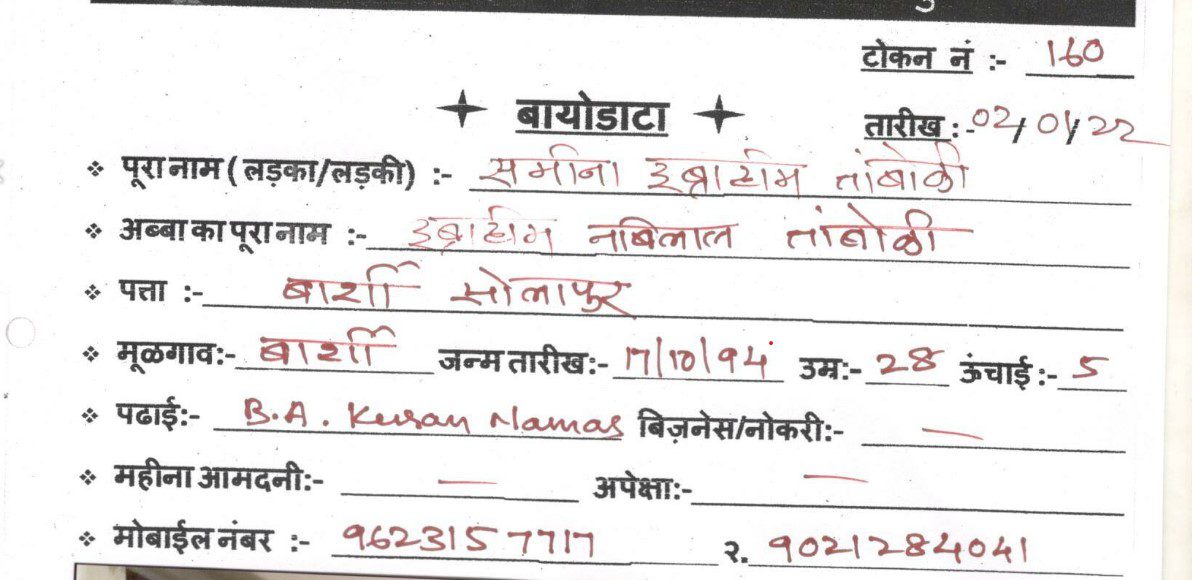 टोकन नं :- 160
बायोडाटा
तारीख :- 02/01/22
❖ पूरा नाम ( लड़का/लड़की) :- समीना इब्राहीम तांबोळी
❖ अब्बा का पूरा नाम :- इब्राहीम नबिलाल तांबोळी
❖ पत्ता :- बार्शी सोलापुर
❖ मूळगाव:- बार्शी जन्म तारीख:- 17/10/94 उम्र:- 28 ऊंचाई :- 5
❖ पढाई:- B.A. Kuran Namas बिज़नेस/नोकरी:- —
❖ महीना आमदनी:- — अपेक्षा:- —
❖ मोबाईल नंबर :- 9623157717 २. 9021284041